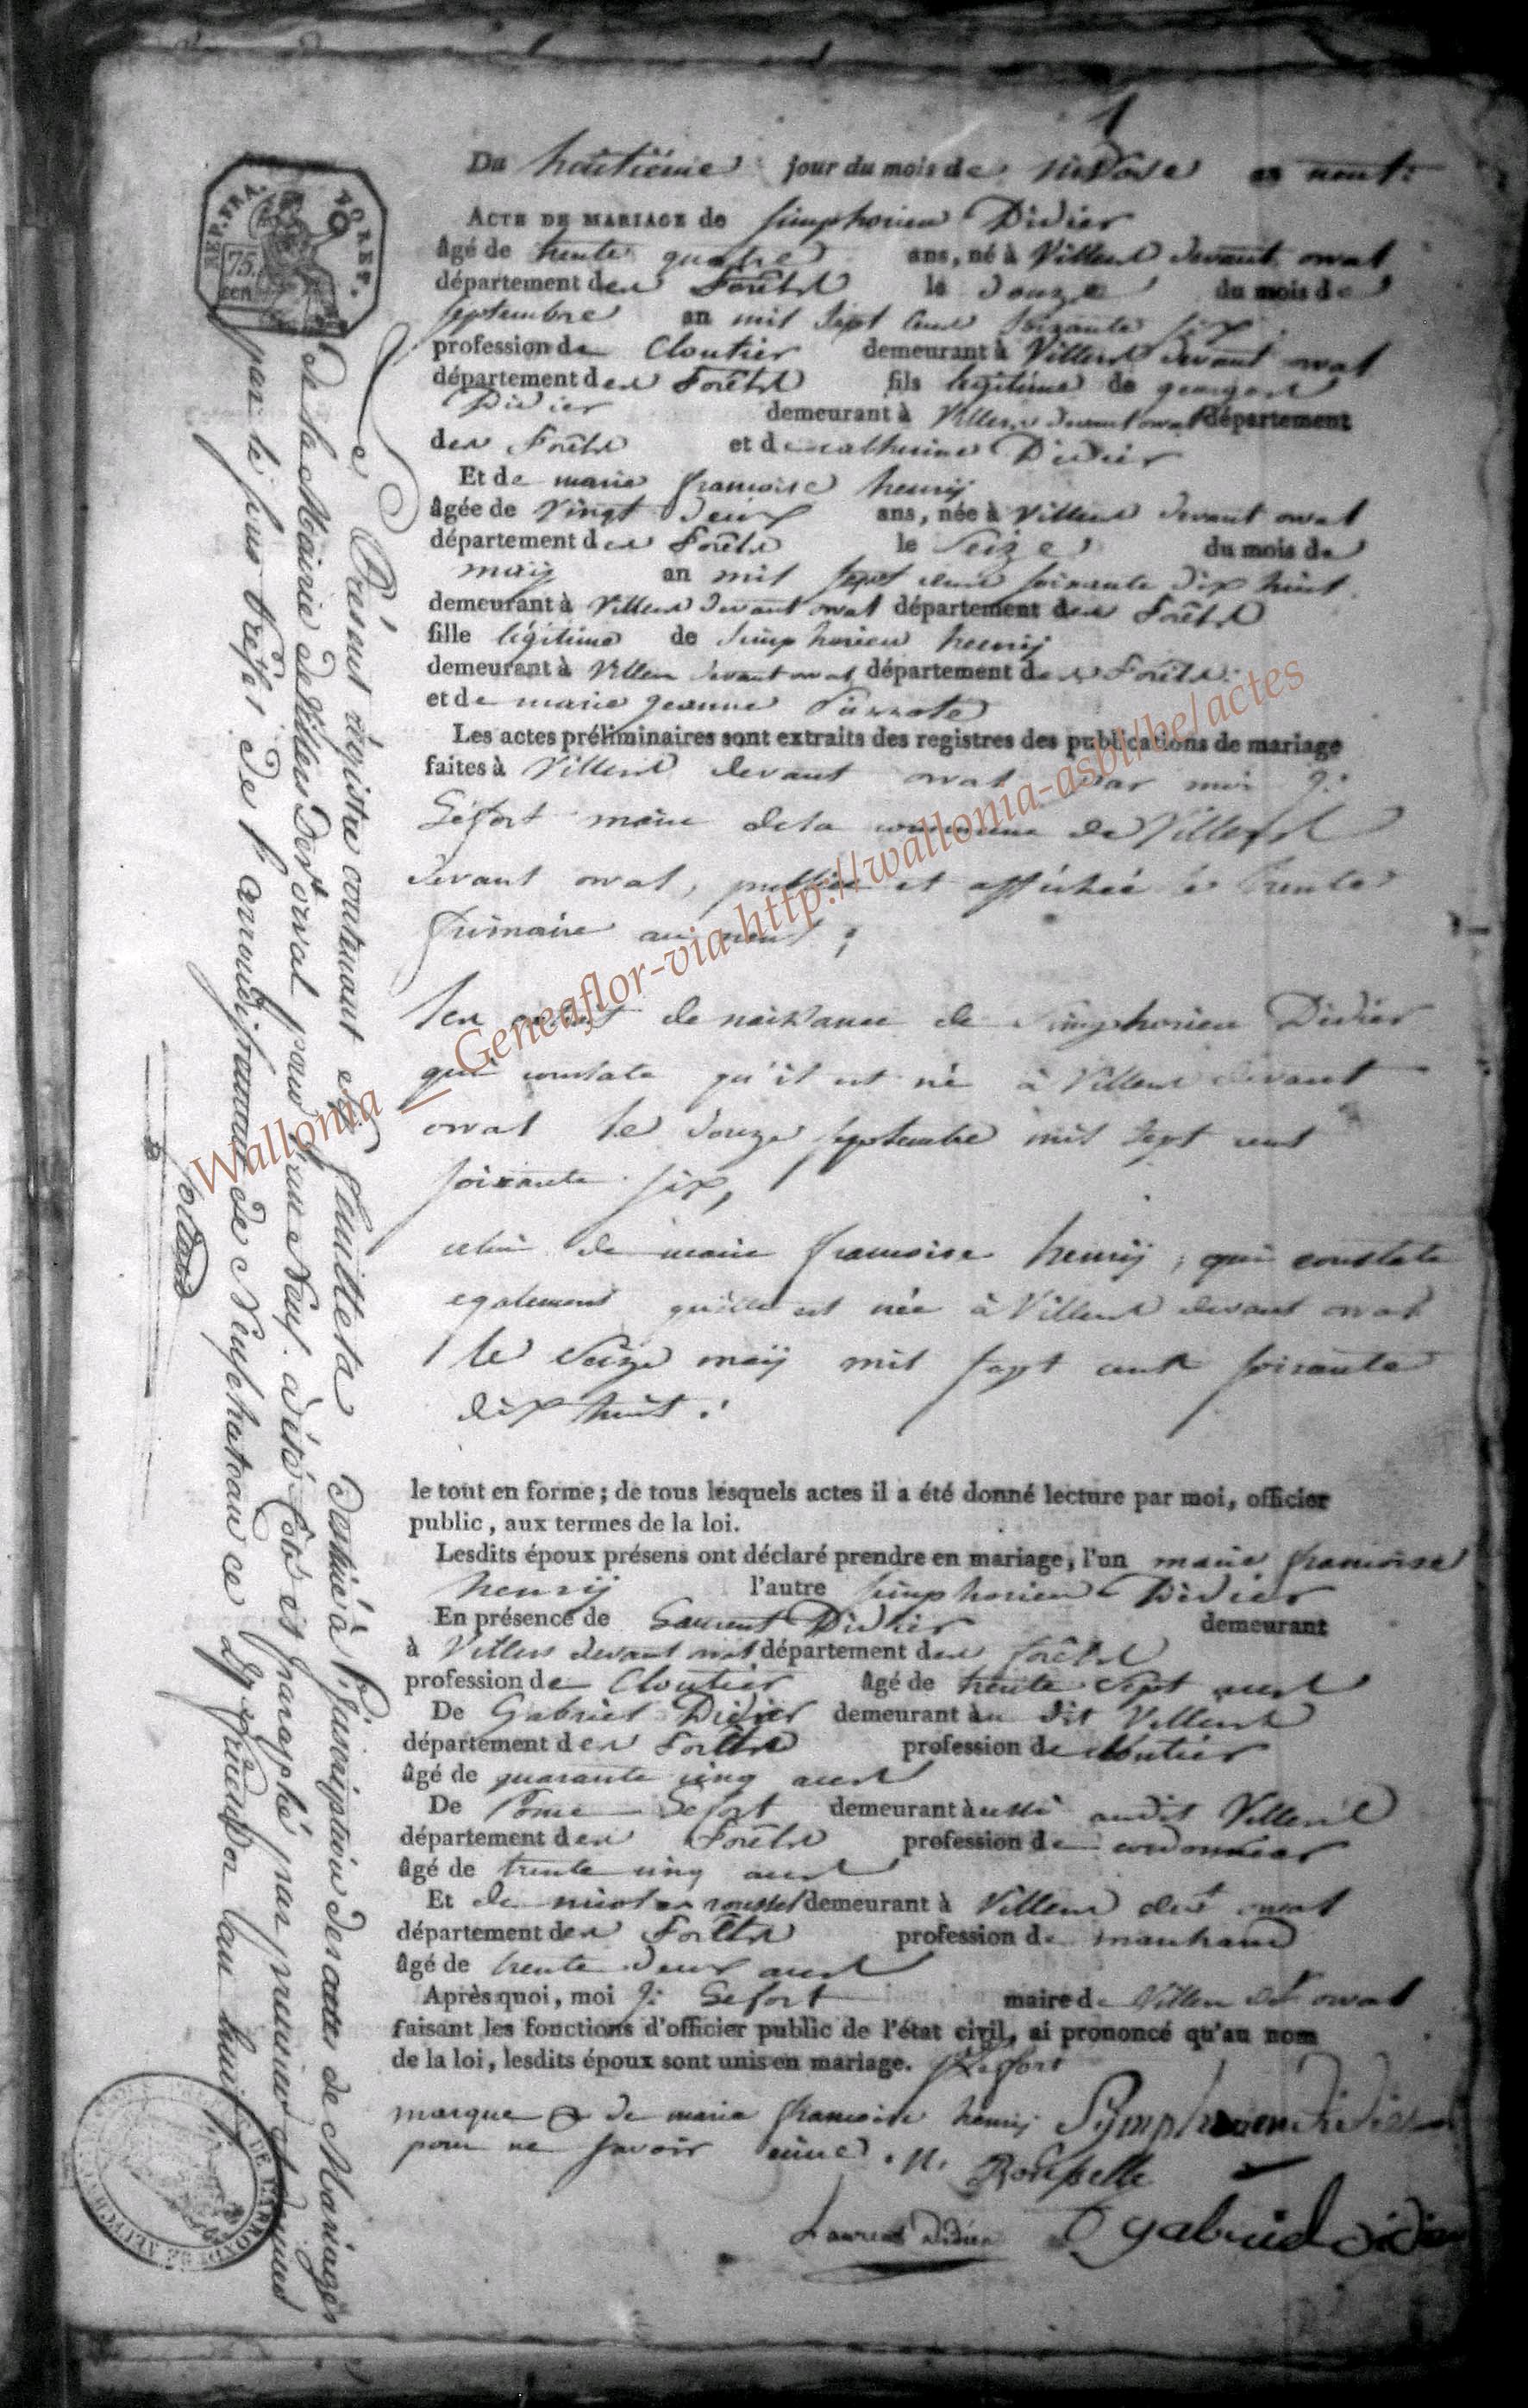 1
Du huitieme jour du mois de nivose an neuf.
ACTE DE MARIAGE de simphorien Didier
âgé de trente quatre ans, né à Villers devant orval
département des Forêts le douze du mois de
septembre an mil sept cent soixante six
profession de Cloutier demeurant à Villers devant orval
département des Forêts fils legitime de
Didier demeurant à Villers devant orval département
des Forêts et de catherine Didier
Et de marie francoise henrij
âgée de Vingt deux ans, née à Villers devant orval
département des Forêts le seize du mois de
maij an mil sept cent soixante dix huit
demeurant à Villers devant orval département des Forêts
fille légitime de simphorien henrij
demeurant à Villers devant orval département des Forêts
et de marie jeanne
Les actes préliminaires sont extraits des registres des publications de mariage
faites à Villers devant orval par moi J:
Gefort maire de la commune de Villers
devant orval, publiée et affichée le trente
frimaire an neuf;
les actes de naissance de simphorien Didier
qui constate qu'il est né à Villers devant
orval le douze septembre mil sept cent
soixante six,
celui de marie francoise henrij, qui constate
egalement qu'elle est née à Villers devant orval
le seize maij mil sept cent soixante
dix huit.
le tout en forme; de tous lesquels actes il a été donné lecture par moi, officier
public, aux termes de la loi.
Lesdits époux présens ont déclaré prendre en mariage, l'un marie francoise
henrij l'autre simphorien Didier
En présence de Laurent Didier demeurant
à Villers devant orval département des forêts
profession de Cloutier âgé de trente sept ans
De Gabriel Didier demeurant au dit Villers
département des Forêts profession de cloutier
âgé de quarante cinq ans
De Gefort demeurant aussi audit Villers
département des Forêts profession de cordonnier
âgé de trente cinq ans
Et de nicolas roussel demeurant à Villers devt orval
département des Forêts profession de marchand
âgé de trente deux ans
Après quoi, moi J: Gefort maire de Villers dt orval
faisant les fonctions d'officier public de l'état civil, ai prononcé qu'au nom
de la loi, lesdits époux sont unis en mariage.
marque de marie francoise henrij Symphorien Didier
pour ne savoir écrire. N.
Laurent Didier gabriel didier
REP. FRA. FORET.
75. cen
Le Présent régistre contenant feuillets Destiné à l'inscription des actes de Mariages
de la Mairie de Villers Devt orval pour l'an Neuf. a été Coté et paraphé par premier et dernier
par le sous Préfet de l'arrondissement de Neufchateau ce l'an huit
Wallonia _ Geneaflor-via http://wallonia-asbl/be/actes